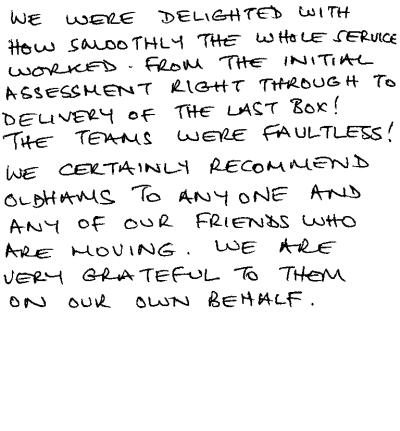 WE WERE DELIGHTED WITH
HOW SMOOTHLY THE WHOLE SERVICE
WORKED. FROM THE INITIAL
ASSESSMENT RIGHT THROUGH TO
DELIVERY OF THE LAST BOX!
THE TEAMS WERE FAULTLESS!
WE CERTAINLY RECOMMEND
OLDHAMS TO ANYONE AND
ANY OF OUR FRIENDS WHO
ARE MOVING. WE ARE
VERY GRATEFUL TO THEM
ON OUR OWN BEHALF.